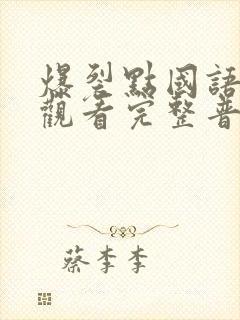 爆裂點國語
觀看完整普
蔡李李